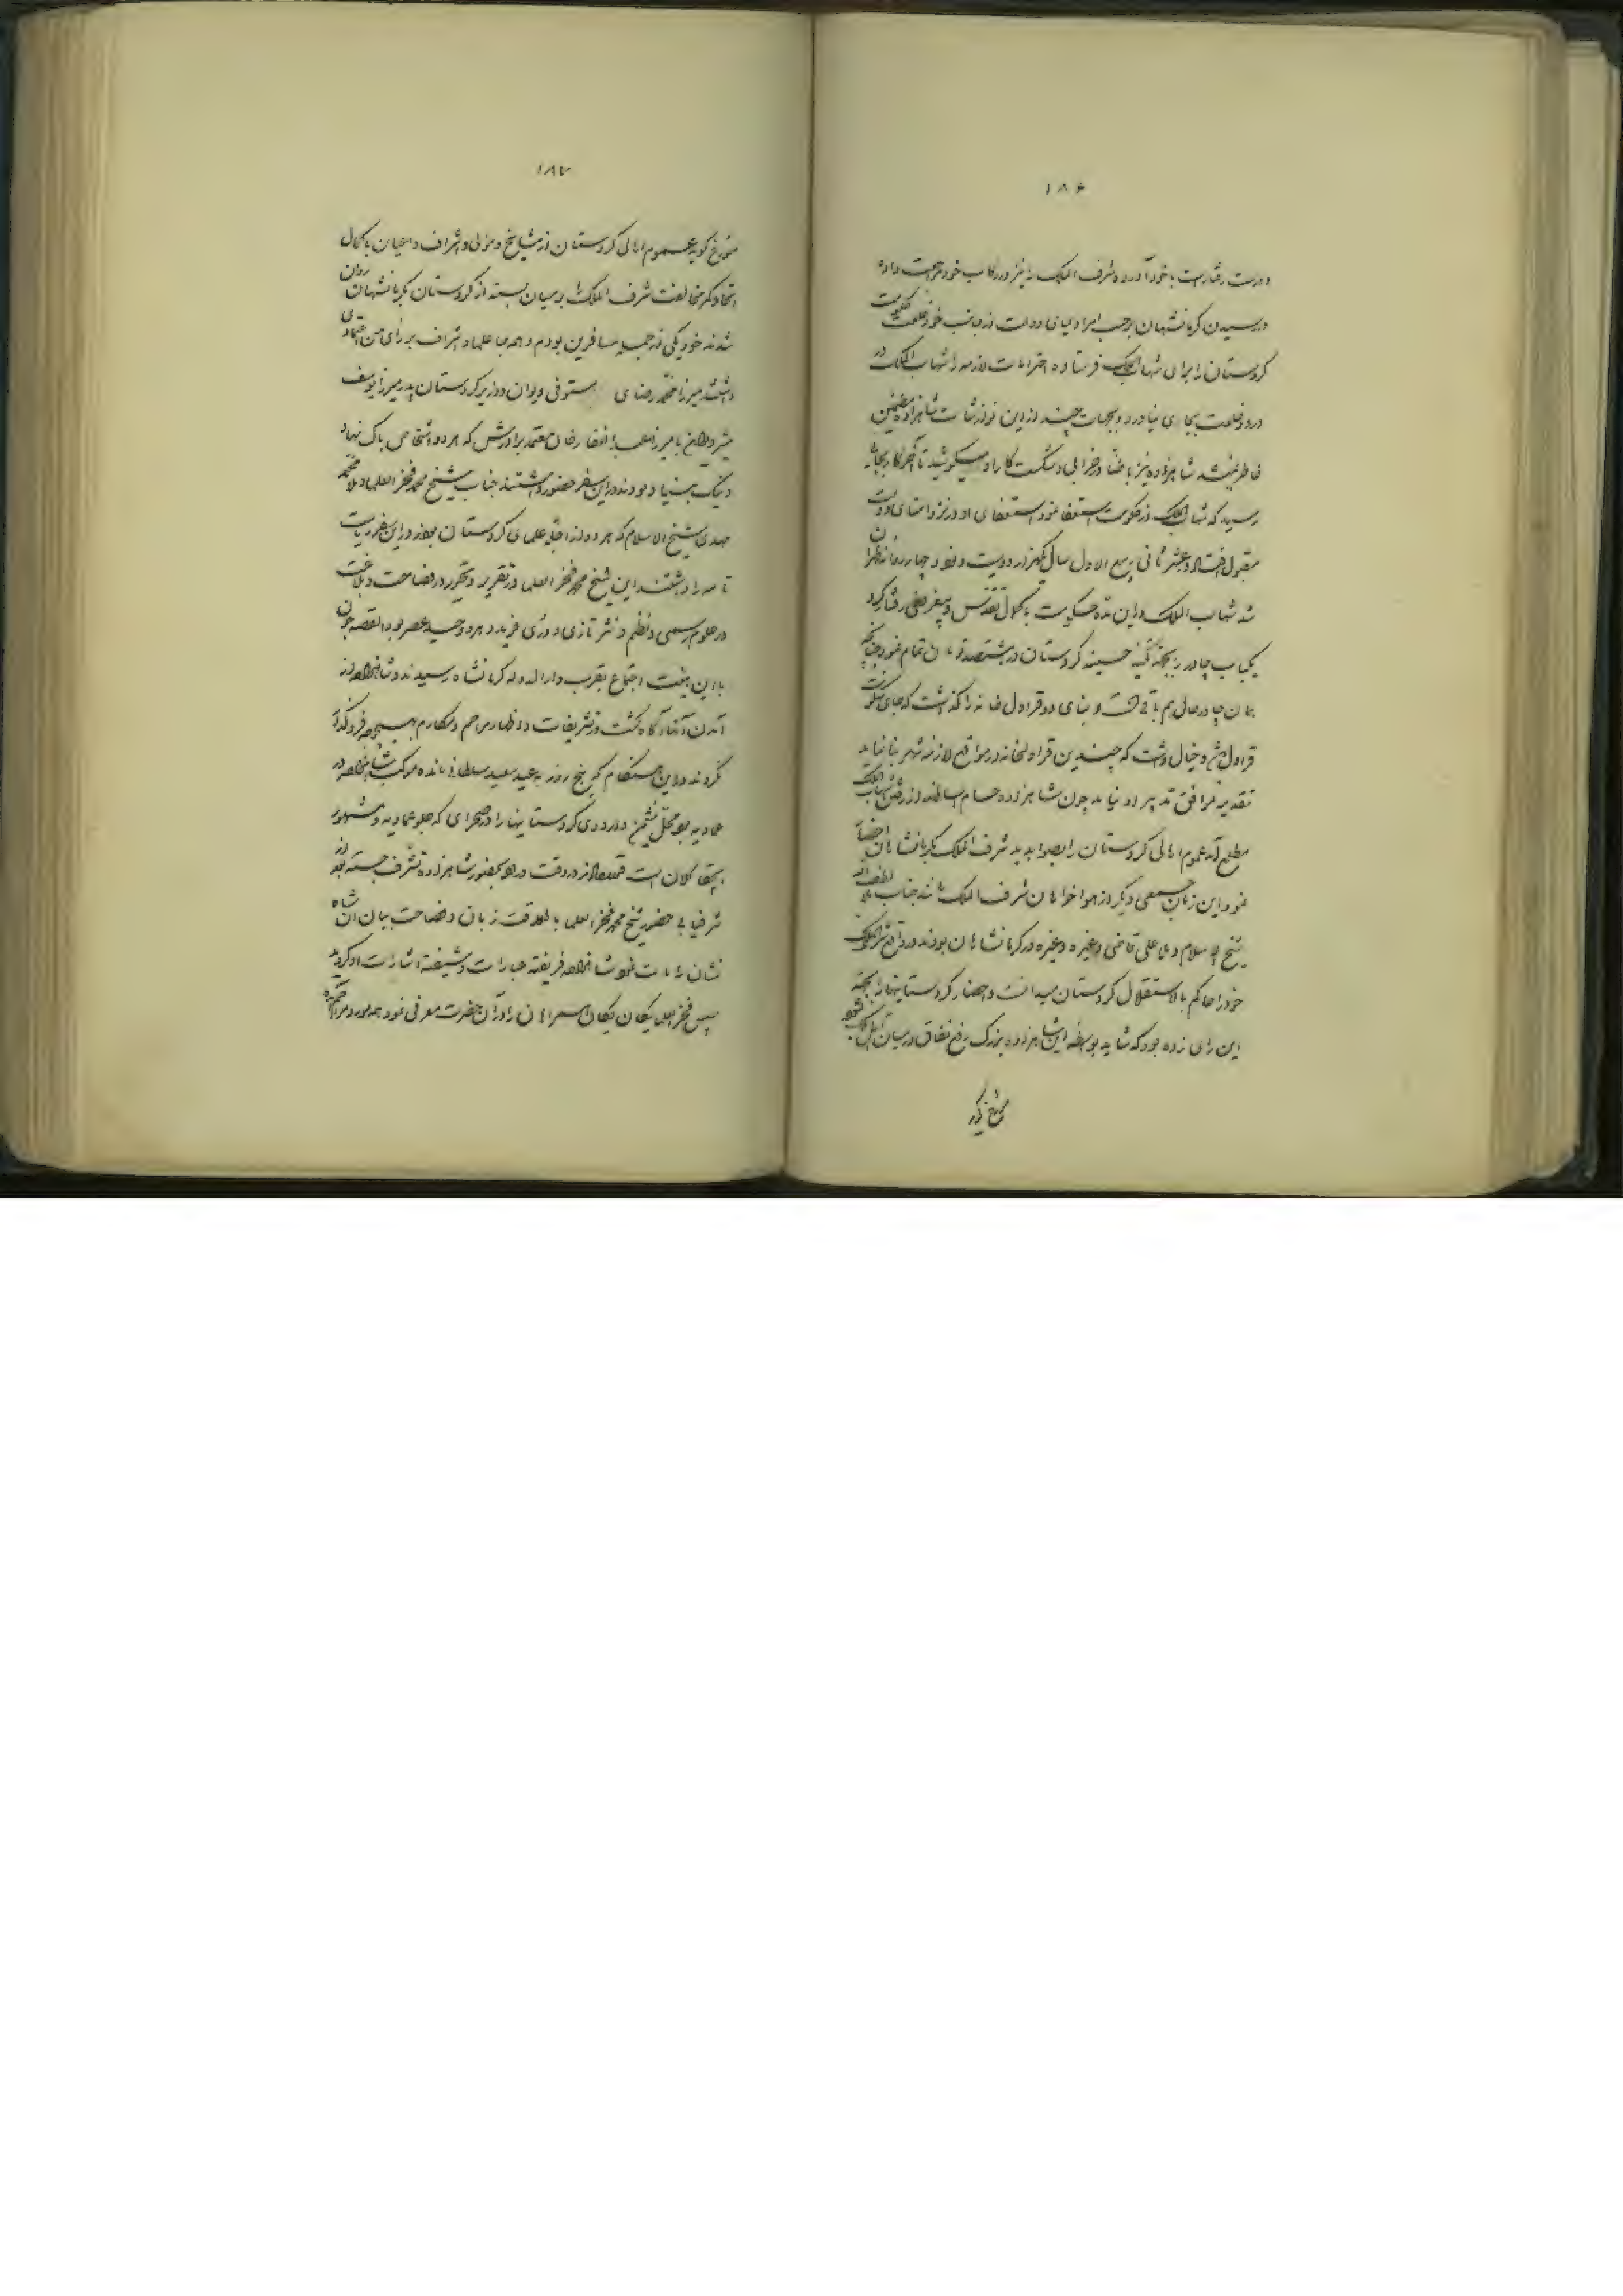 ۱۸۶
ودرست رفتارست با خود آورده شرف الملک را نیز در رکاب خود مراجعت داده
در رسیدن کرمانشهان بر حسب امر اولیای دولت از جانب خود خلعت حکومت
کردستان را برای شهاب الملک فرستاده احترامات لازمه را شهاب الملک در
ورود خلعت بجای نیاورد و بجهات چند از این نوازشات شاهزاده مطمئن
خاطر نمیشد شاهزاده نیز باطناً در خرابی و شکست کار او میکوشید تا آخر کار بجائی
رسید که شهاب الملک از حکومت استعفا نمود استعفای او در نزد امنای دولت
مقبول افتاد و عشر ثانی ربیع الاول سال یکهزار و دویست و نود و چهار روانه طهران
شد شهاب الملک در این مدة حکومت با کمال تقدس و بیغرضی رفتار کرد
یکباب چادر بجهة تکیه حسینیه کردستان در هشتصد تومان تمام نمود چنانچه
همان چادر حال هم باقی است و بنای دو قراول خانه را گذاشت که جای سکونت
قراول باشد و خیال داشت که چندین قراولخانه در مواقع لازمه شهر بنا نماید
تقدیر موافق تدبیر او نیامد چون شاهزاده حسام السلطنه از رفتن شهاب الملک
مطلع آمد عموم اهالی کردستان را بصوابدید شرف الملک بکرمانشاهان احضار
نمود این زمان جمعی دیگر از هواخواهان شرف الملک مانند جناب ملا لطف الله
شیخ الاسلام و ملا علی قاضی و غیره و غیره در کرمانشاهان بودند در واقع شرف الملک
خود را حاکم بالاستقلال کردستان میدانست و احضار کردستانیها را بجهة
این رای زده بود که شاید بواسطه این شاهزاده بزرک رفع نفاق در میان اهل ملک شود
مورخ گوید
۱۸۷
مورخ گوید عموم اهالی کردستان از مشایخ و موالی و اشراف و اعیان با کمال
اتحاد کمر مخالفت شرف الملک را بر میان بسته از کردستان بکرمانشهان روان
شدند خود یکی از جمله مسافرین بودم و همه جا علما و اشراف بر رای من اعتمادی
داشتند میرزا محمد رضای مستوفی دیوان و وزیر کردستان پدر میرزا یوسف
مشیر دیوان با میرزا عبد الغفار خان معتمد برادرش که هر دو اشخاص پاک نهاد
و نیک بنیاد بودند در این سفر حضور داشتند جناب شیخ محمد فخر العلما و ملا محمد
مهدی شیخ الاسلام که هر دو از اجله علمای کردستان بودند در این سفر ریاست
تامه را داشتند این شیخ محمد فخر العلما در تقریر و تحریر در فصاحت و بلاغت
در علوم رسمی و نظم و نثر تازی و دری فرید دهر و وحید عصر بود القصه چون
با این هیئت اجتماع بقرب دار الدوله کرمانشاه رسیدند و شاهزاده از
آمدن آنها آگاه گشت در تشریفات و اظهار مراحم و مکارم بهیچوجه فروگذار
نکردند در این هنگام که پنج روز به عید سعید سلطانی مانده موکب شاهزاده در
عمادیه بود محل نشیمن و اردوی کردستانیها را در صحرای که جلو عمادیه و مشهور
بچقا کلان است قرار دادند در وقت ورود بحضور شاهزاده تشرف جسته بعد از
شرفیابی حضور شیخ محمد فخر العلما با طلاقت زبان و فصاحت بیان آن شاه
نشان را مات نمود شاهزاده فریفته عبارات و شیفته اشارات او گردید
پس فخر العلما یکان یکان همراهان را در آن حضرت معرفی نمود همه مورد مراحم